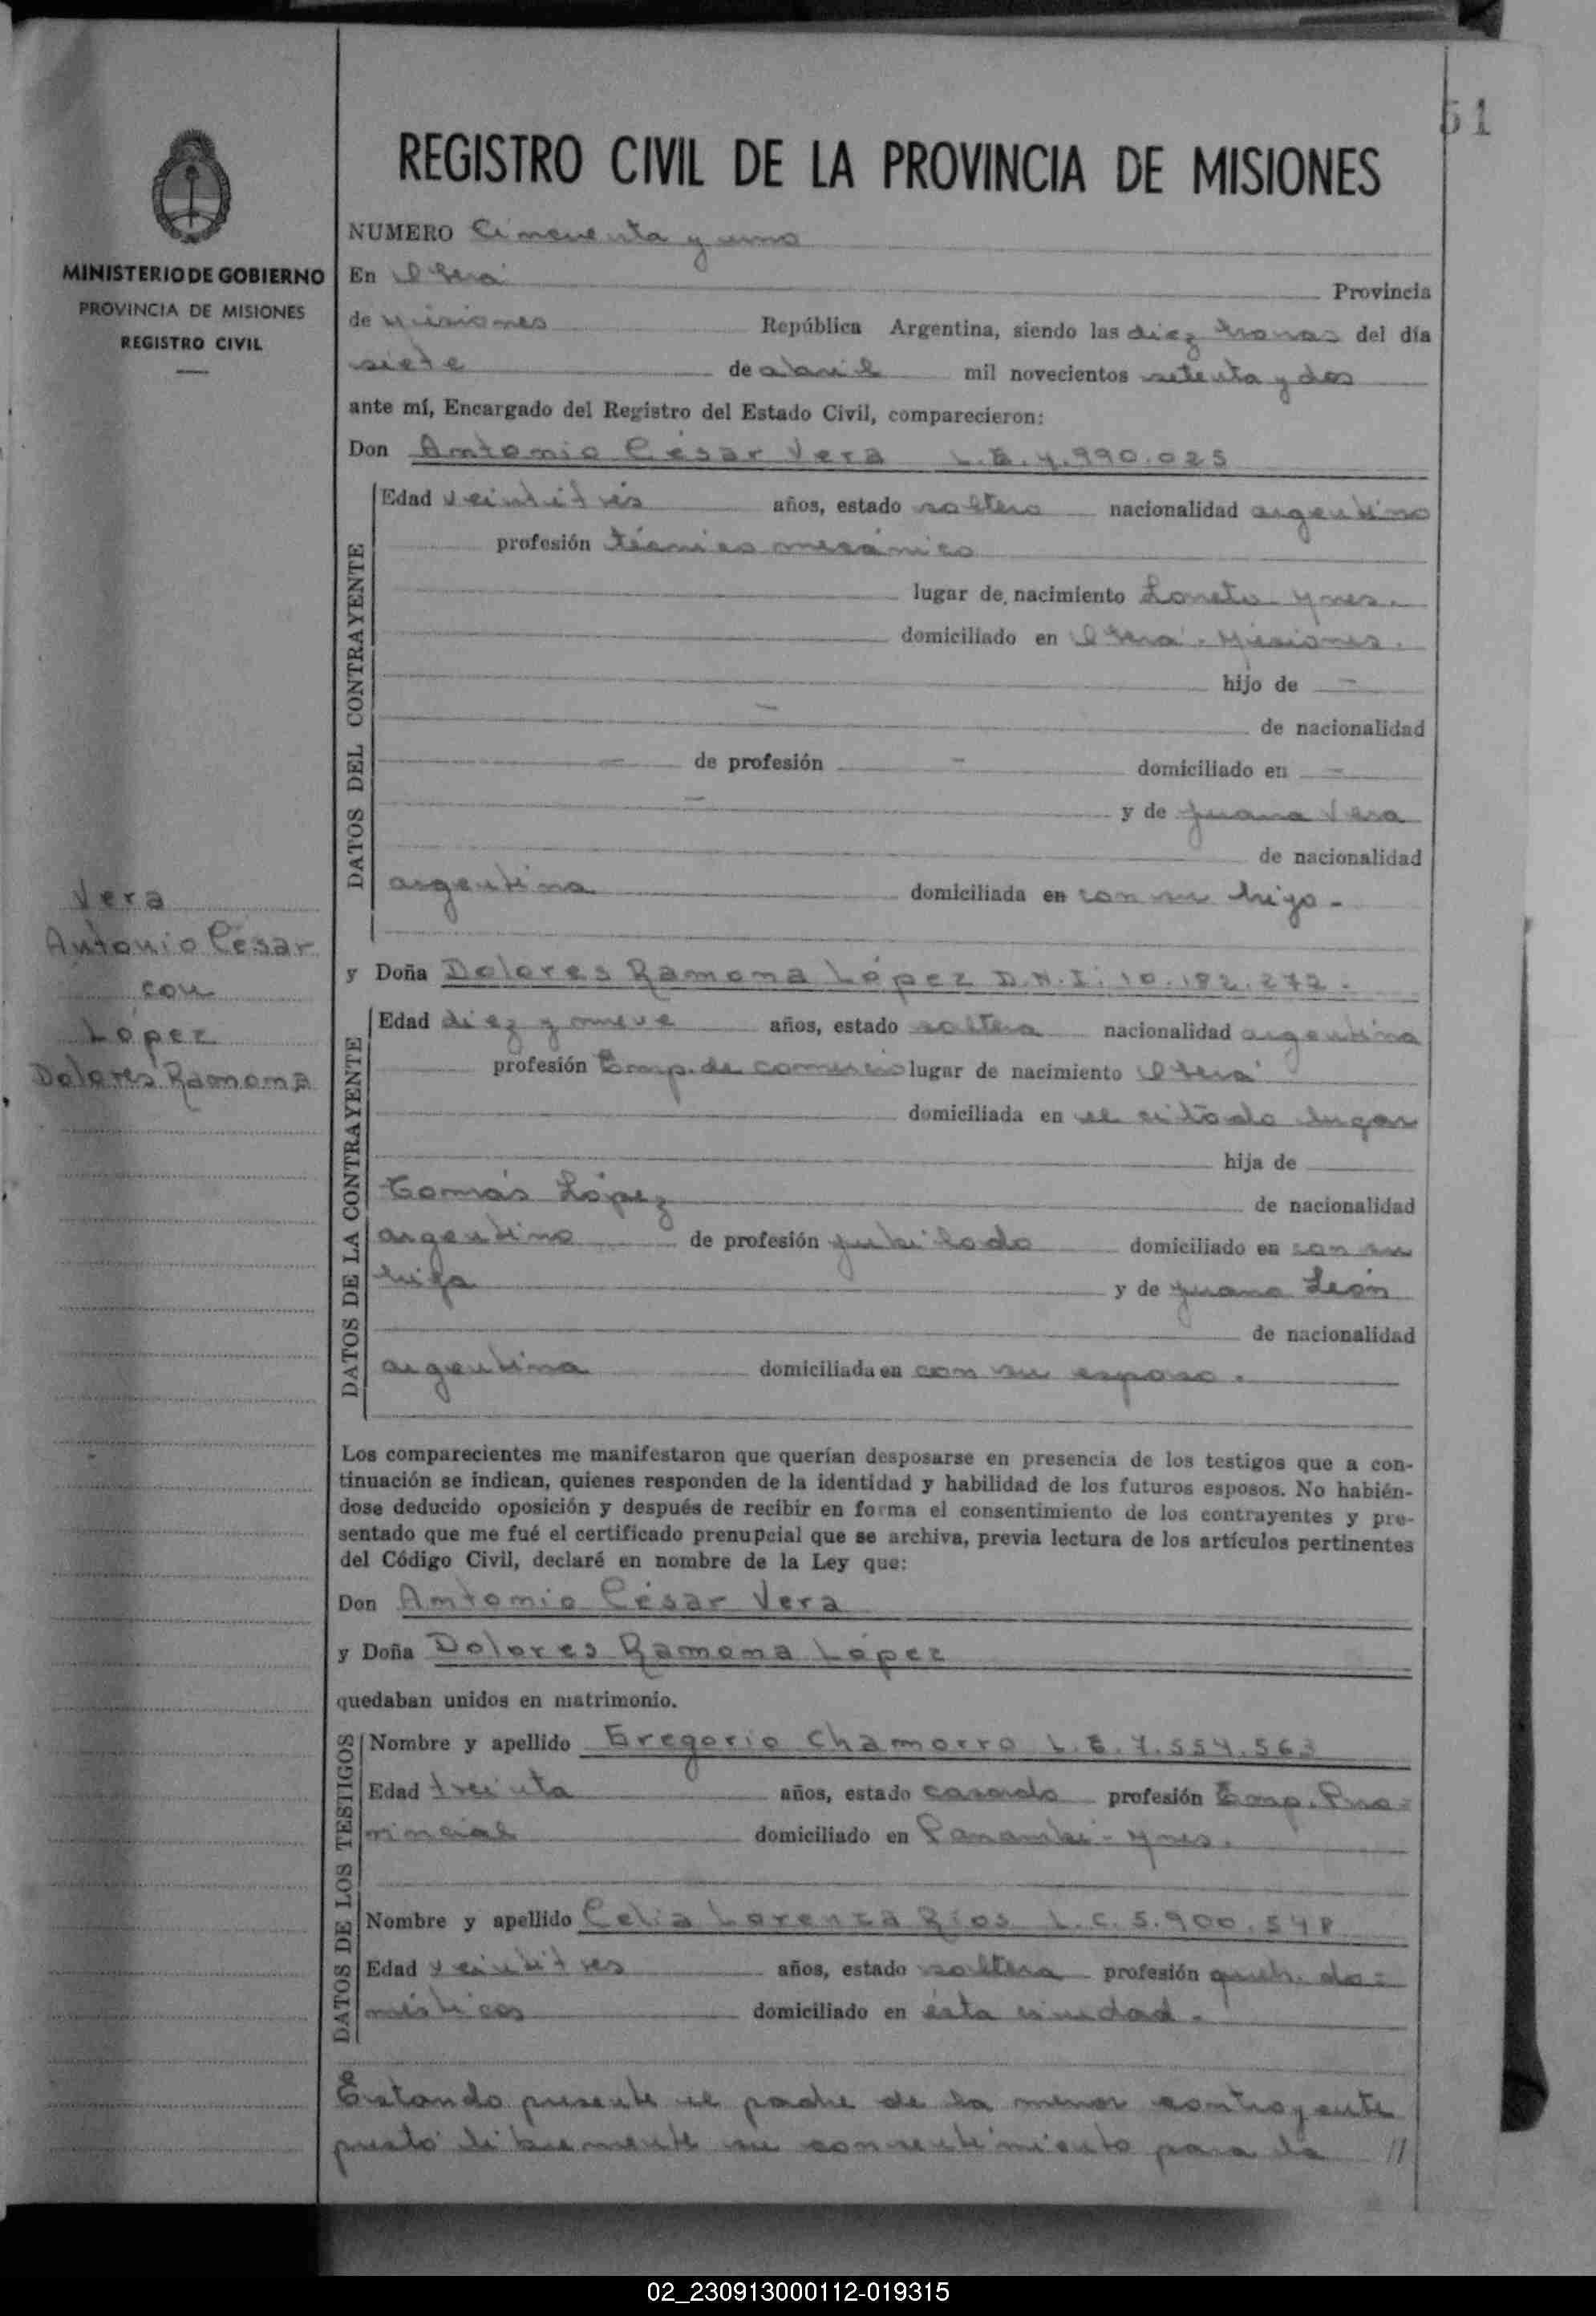 51
REGISTRO CIVIL DE LA PROVINCIA DE MISIONES
MINISTERIO DE GOBIERNO
PROVINCIA DE MISIONES
REGISTRO CIVIL
Vera
Antonio César
con
López
Dolores Ramona
NUMERO Cincuenta y uno
En Oberá Provincia
de Misiones República Argentina, siendo las diez horas del día
siete de abril mil novecientos setenta y dos
ante mí, Encargado del Registro del Estado Civil, comparecieron:
Don Antonio César Vera L.E. 7.990.025
DATOS DEL CONTRAYENTE
Edad veintitrés años, estado soltero nacionalidad argentino
profesión técnico mecánico
lugar de nacimiento Loreto Mnes.
domiciliado en Oberá - Misiones.
hijo de -
- de nacionalidad
- de profesión - domiciliado en -
- y de Juana Vera
de nacionalidad
argentina domiciliada en con su hijo -
y Doña Dolores Ramona López D.N.I. 10.182.272.
DATOS DE LA CONTRAYENTE
Edad diez y nueve años, estado soltera nacionalidad argentina
profesión Emp. de comercio lugar de nacimiento Oberá
domiciliada en el citado lugar
hija de
Tomás López de nacionalidad
argentino de profesión jubilado domiciliado en con su
hija y de Juana León
de nacionalidad
argentina domiciliada en con su esposo.
Los comparecientes me manifestaron que querían desposarse en presencia de los testigos que a con-
tinuación se indican, quienes responden de la identidad y habilidad de los futuros esposos. No habién-
dose deducido oposición y después de recibir en forma el consentimiento de los contrayentes y pre-
sentado que me fué el certificado prenupcial que se archiva, previa lectura de los artículos pertinentes
del Código Civil, declaré en nombre de la Ley que:
Don Antonio César Vera
y Doña Dolores Ramona López
quedaban unidos en matrimonio.
DATOS DE LOS TESTIGOS
Nombre y apellido Gregorio Chamorro L.E. 7.554.563
Edad treinta años, estado casado profesión Emp. Pro-
vincial domiciliado en Panambí - Mnes.
Nombre y apellido Celia Lorenza Ríos L.C. 5.900.548
Edad veintitres años, estado soltera profesión queh. do-
mésticos domiciliado en ésta ciudad.
Estando presente el padre de la menor contrayente
prestó libremente su consentimiento para la //
02_230913000112-019315